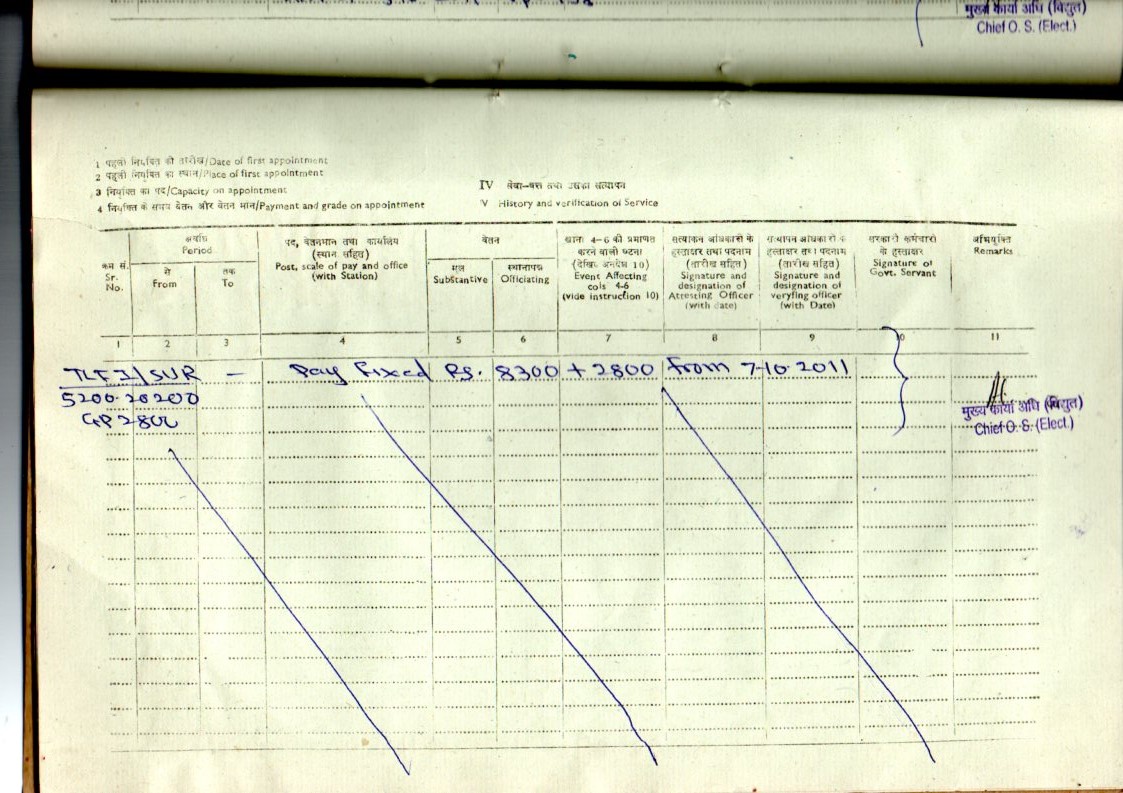 मुख्य कार्या अधि (विद्युत)
Chief O. S. (Elect.)
1 पहली नियुक्ति की तारीख/Date of first appointment
2 पहली नियुक्ति का स्थान/Place of first appointment
3 नियुक्ति का पद/Capacity on appointment
4 नियुक्ति के समय वेतन और वेतन मान/Payment and grade on appointmene
IV सेवा-वृत्त तथा उसका सत्यापन
V History and verification of Service
क्रम सं.
Sr.
No.
अवधि
Period
से
From
तक
To
पद, वेतनमान तथा कार्यालय
(स्थान सहित)
Post, scale of pay and office
(with Station)
वेतन
मूल
Substantive
स्थानापन्न
Officiating
खाना 4-6 को प्रभावित
करने वाली घटना
(देखिए अनुदेश 10)
Event Affecting
cols 4-6
(vide instruction 10)
सत्यापन अधिकारी के
हस्ताक्षर तथा पदनाम
(तारीख सहित)
Signature and
designation of
Attesting Officer
(with date)
सत्यापन अधिकारी के
हस्ताक्षर तथा पदनाम
(तारीख सहित)
Signature and
designation of
veryfing officer
(with Date)
सरकारी कर्मचारी
के हस्ताक्षर
Signature of
Govt. Servant
अभियुक्ति
Remarks
1 2 3 4 5 6 7 8 9 10 11
TLF I/SUR – Pay Fixed Rs. 8300 + 2800 from 7-10-2011
5200-20200
GP 2800
मुख्य कार्या अधि (विद्युत)
Chief O. S. (Elect.)